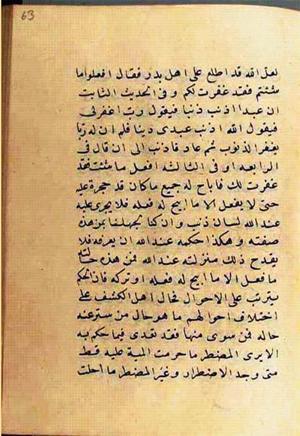 63
لعل الله قد اطلع على اهل بدر فقال افعلوا ما
شئتم فقد غفرت لكم وفى الحديث الثابت
ان عبدا اذنب ذنبا فيقول رب اغفرلى
فيقول الله اذنب عبدى ذنبا فعلم ان له ربا
يغفر الذنوب ثم عاد فاذنب الى ان قال فى
الرابعه او فى الثالثة افعل ما شئت فقد
غفرت لك فاباح له جميع ما كان قد حجره عليه
حتى لا يفعل الا ما ابيح له فعله فلا يجرى عليه
عند الله لسان ذنب وان كنا نجهل من هذه
صفته وهكذا حكمه عند الله ان يعرفه فلا
يقدح ذلك منزلته عند الله فمن هذه حالته
ما فعل الا ما ابيح له فعله او تركه فان الحكم
يترتب على الاحوال فحال اهل الكشف على
اختلاف احوالهم ما هو حال من ستر عنه
حاله فمن سوى منها فقد تعدى فيما حكم به
الا يرى المضطر ما حرمت الميتة عليه قط
متى وجد الاضطرار وغير المضطر ما احلت